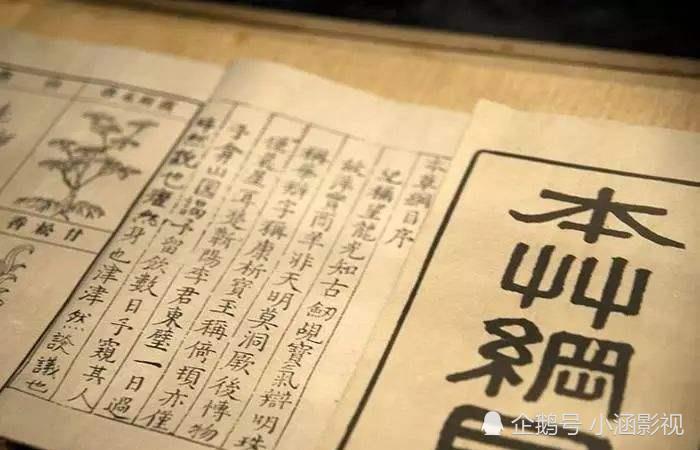 本艸綱目
本草綱目序
兄稱望龍光知古劒覘寳氣辯明珠
故萍實商羊非天明莫洞厥後博物
稱華辯字稱康析寳玉稱倚頓亦僅
僅晨星耳楚蘄陽李君東璧一日過
子弇山园謁予留飲數日予窺其人
睟然說也癯然身也津津然談議也
甘松香
企鹅号 小涵影视